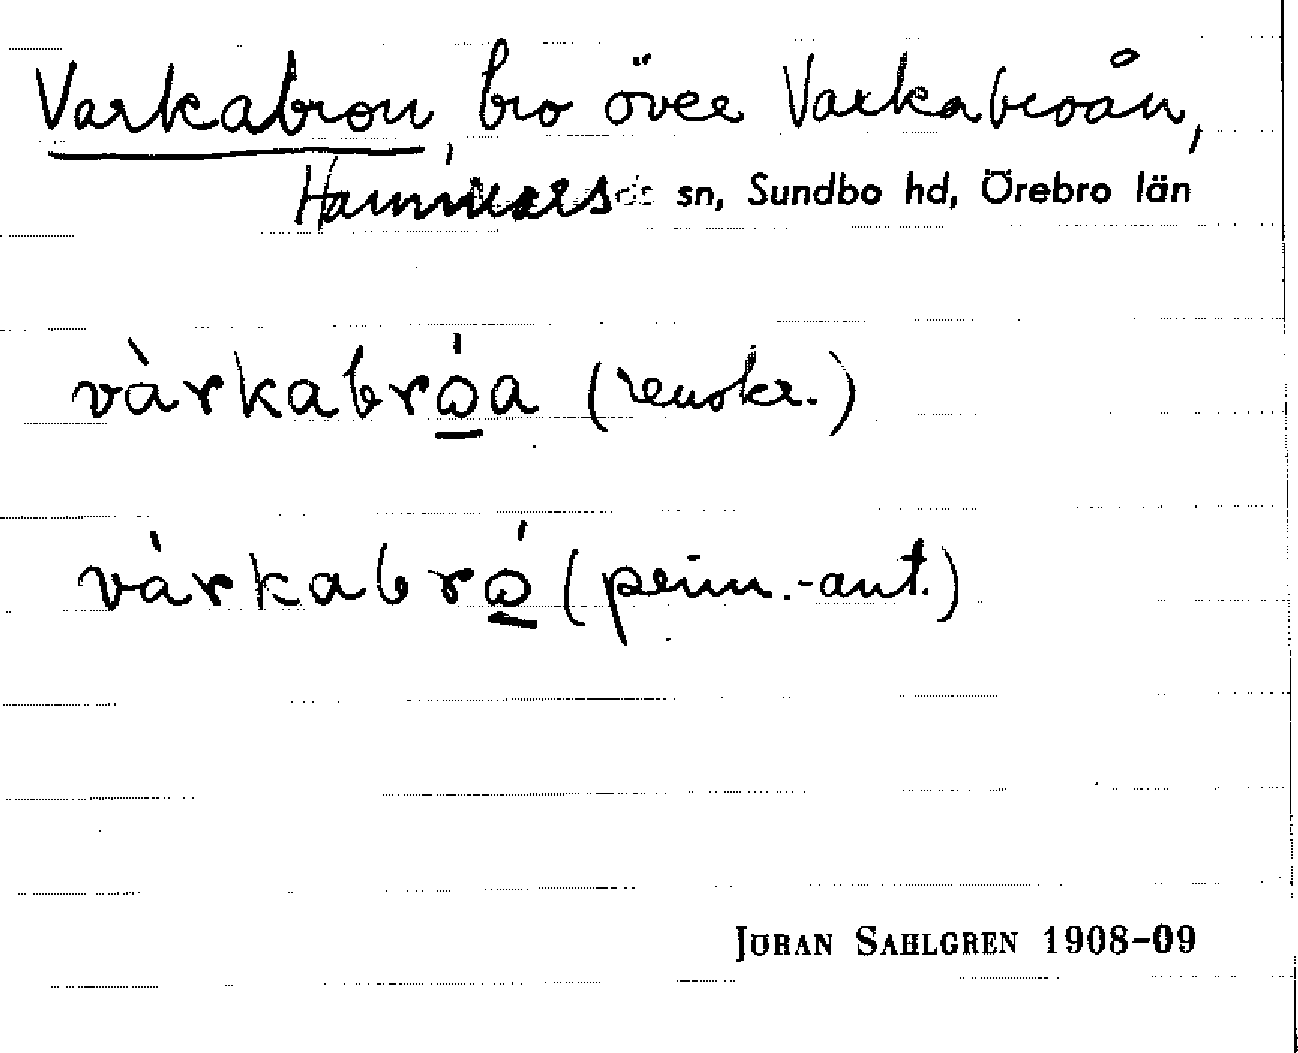 Varkabron, bro över Varkabroån,
Hammars sn, Sundbo hd, Örebro län
vàrkabrǻa (renskr.)
vàrkabrǻ (prim.-ant.)
JÖRAN SAHLGREN 1908-09